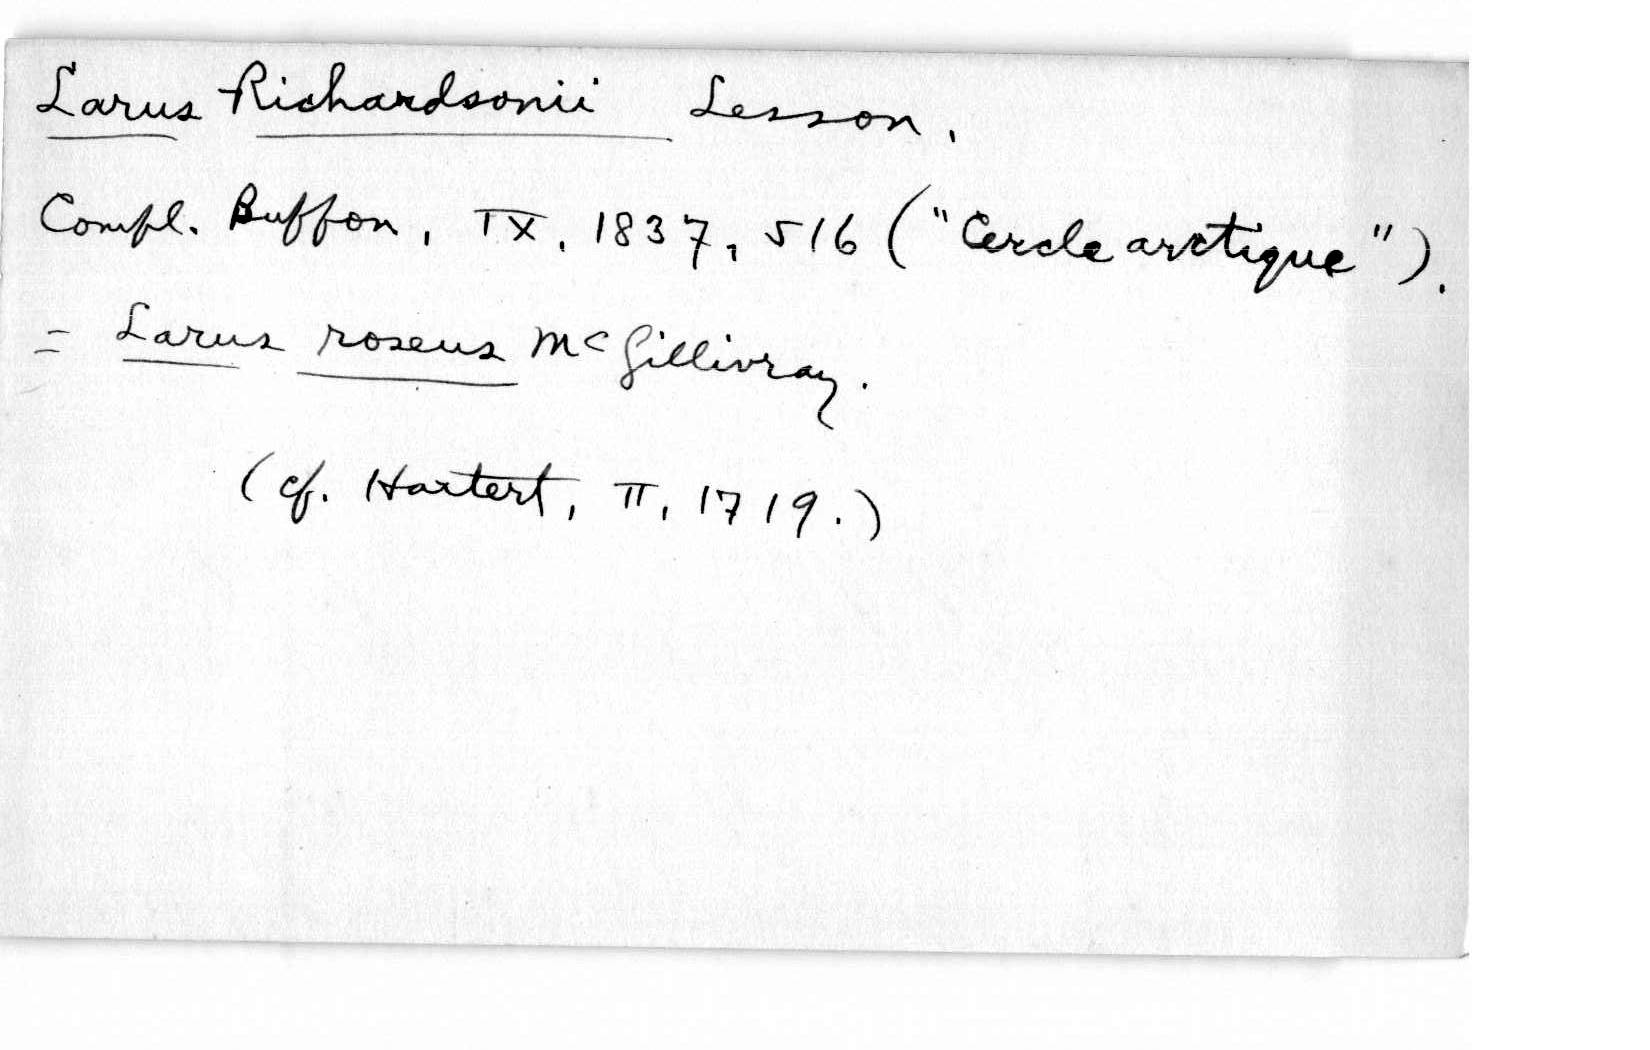 Larus Richardsonii Lesson.
Compl. Buffon, IX, 1837, 516 ("Cercle arctique").
= Larus roseus McGillivray.
(cf. Hartert, II, 1719.)